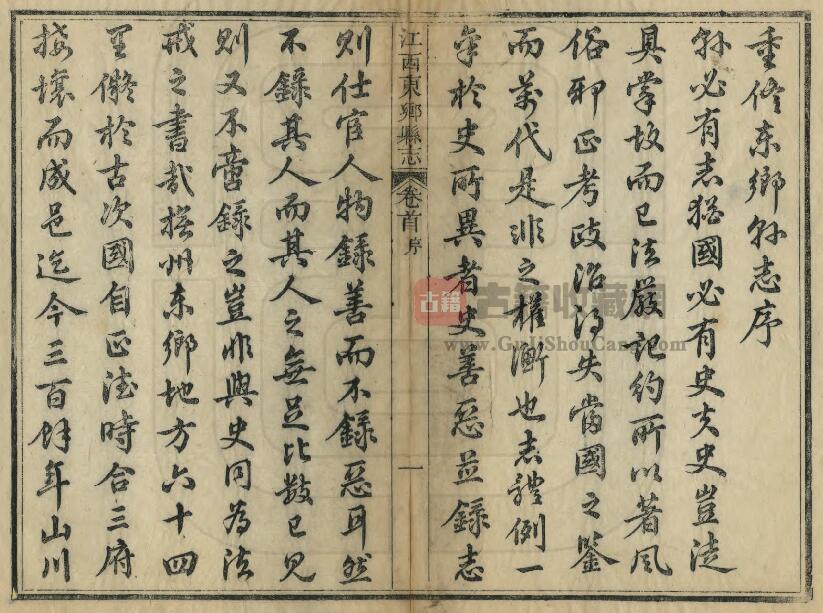 重修东鄉縣志序
縣必有志猶國必有史夫史豈徒
具掌故而已法嚴記約所以著風
俗邪正考政治得失當國之鑒
而萬代是非之權衡也志體例一
準於史所異者史善惡並錄志
江西東鄉縣志 卷首 序 一
則仕宦人物錄善而不錄惡耳然
不錄其人而其人之無足比數已見
則又不啻錄之豈非與史同為法
戒之書哉撫州东鄉地方六十四
里儗於古次國自正德時合三府
接壤而成邑迄今三百餘年山川
古籍 古籍收藏网
www.GujiShouCang.com